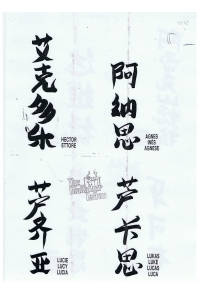 艾克多尔
HECTOR
ETTORE
阿纳思
AGNES
INES
AGNESE
芦齐亚
LUCIE
LUCY
LUCIA
芦卡思
LUKAS
LUKE
LUCAS
LUCA